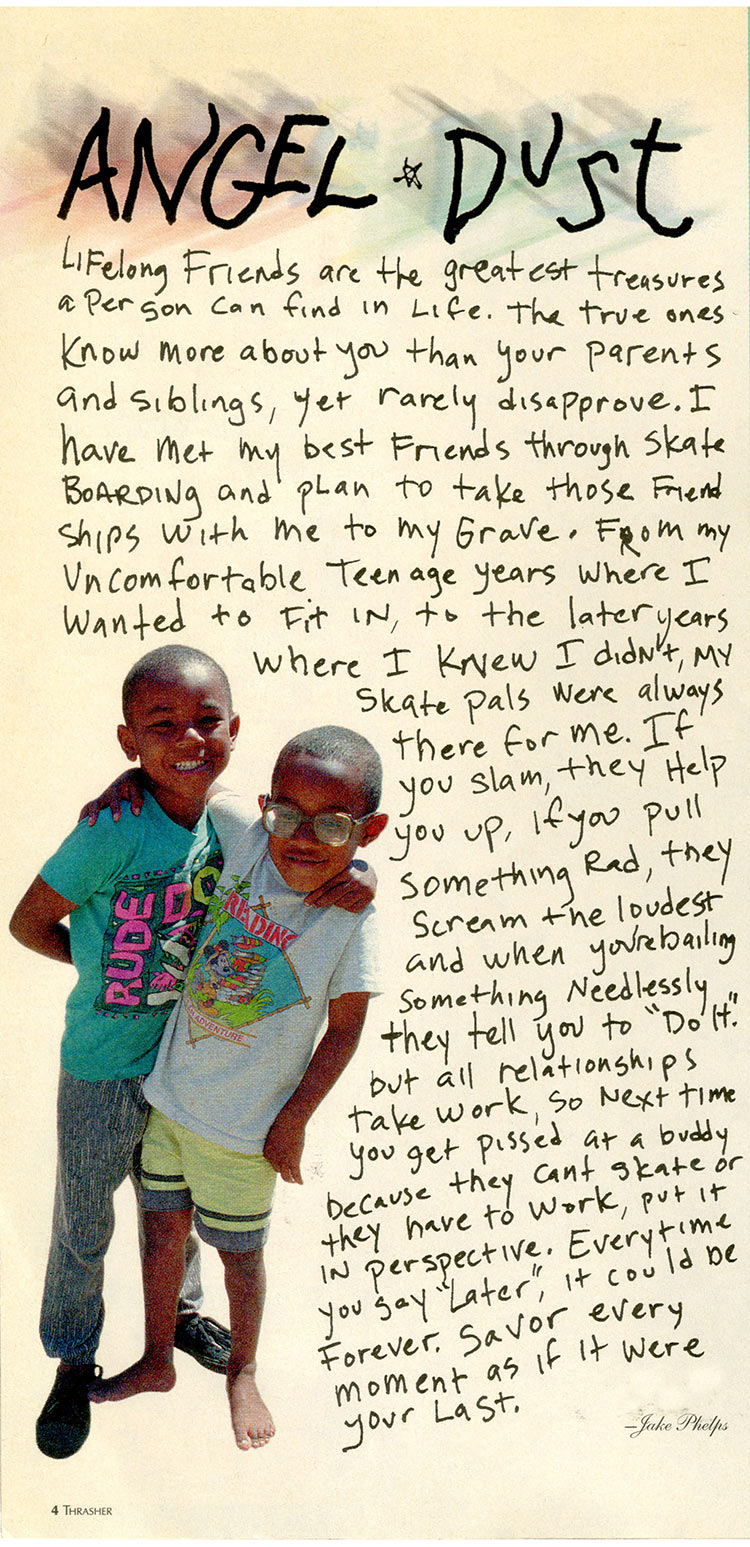 ANGEL ☆ DUST
LIFelong Friends are the greatest treasures
a Person Can find in Life. The true ones
Know more about you than your parents
and siblings, yet rarely disapprove. I
have met my best Friends through skate
BOARDING and plan to take those Friend
ships with me to my Grave. From my
Uncomfortable Teenage years where I
Wanted to Fit IN, to the later years
where I KNew I didn't, MY
Skate pals were always
there for me. If
you slam, they Help
you up, If you pull
something Rad, they
Scream the loudest
and when you're bailing
something Needlessly
they tell you to "Do It."
but all relationships
take work, so Next time
you get pissed at a buddy
because they cant skate or
they have to work, put it
IN perspective. Everytime
you say "Later", it could be
Forever. Savor every
moment as if it were
your Last.
–Jake Phelps
RUDE
READING
ADVENTURE
4 THRASHER